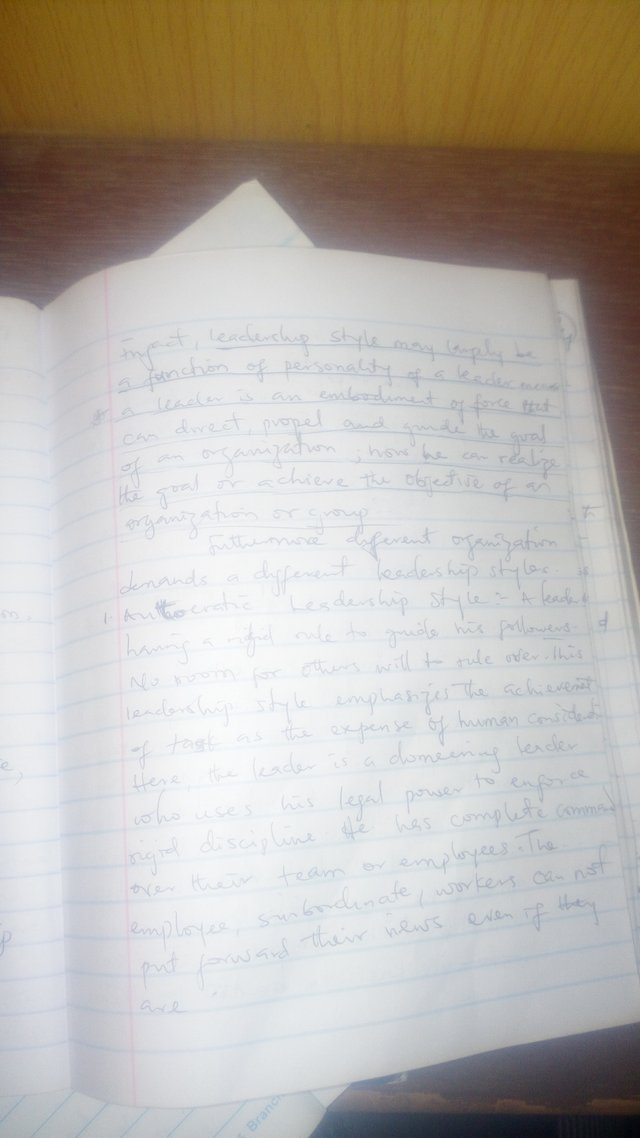 Infact, leadership style may largely be
a function of personality of a leader
a leader is an embodiment of force that
can direct, propel and guide the goal
of an organization; now he can realize
the goal or achieve the objective of an
organization or group
Futhermore different organization
demands a different leadership styles.
1. Autocratic Leadership Style:- A leader
having a rigid rule to guide his followers.
No room for others will to rule over. This
leadership style emphasizes the achievement
of task as the expense of human
Here, the leader is a domeering leader
who uses his legal power to enforce
rigid discipline. He has complete command
over their team or employees. The
employee, surbordinate, workers can not
put forward their news even if they
are
Branch